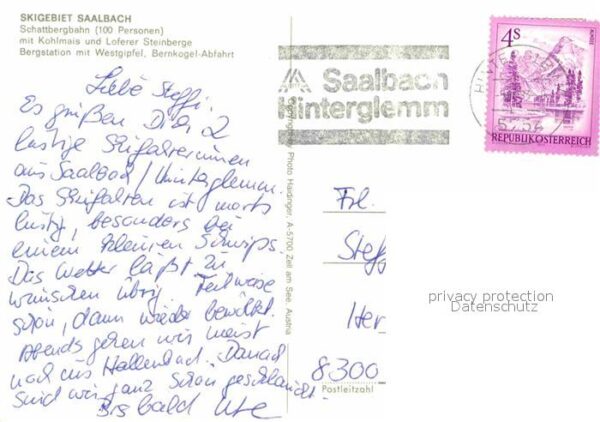 SKIGEBIET SAALBACH
Schattbergbahn (100 Personen)
mit Kohlmais und Loferer Steinberge
Bergstation mit Westgipfel, Bernkogel-Abfahrt
Liebe Steffi!
Es grüßen Dich 2
lustige Skifahrerinnen
aus Saalbach/Hinterglemm.
Das Skifahren ist mords
lustig, besonders bei
einem kleinen Schwips.
Das Wetter läßt zu
wünschen übrig. Teilweise
schön, dann wieder bewölkt.
Abends gehen wir meist
noch ins Hallenbad. Danach
sind wir ganz schön geschlaucht.
Bis bald Ute
Saalbach
Hinterglemm
4 S
REPUBLIK ÖSTERREICH
5754
Photo Haidinger, A-5700 Zell am See, Austria
Frl.
Steff
Her
8300
Postleitzahl
privacy protection
Datenschutz